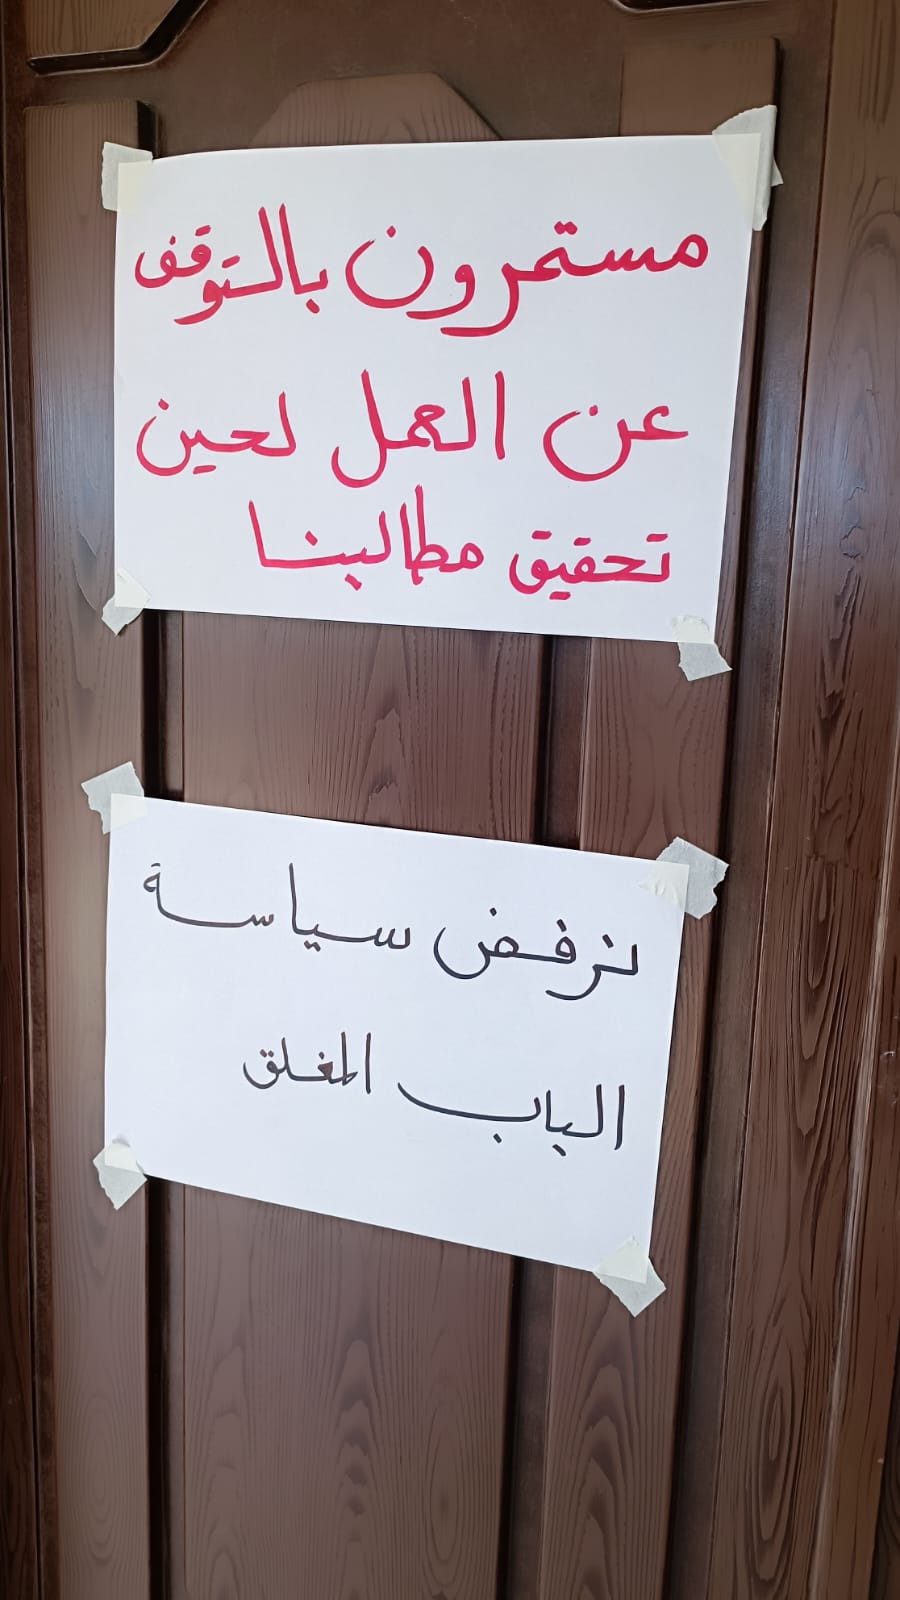 مستمرون بالتوقف
عن العمل لحين
تحقيق مطالبنا
نرفض سياسة
الباب المغلق